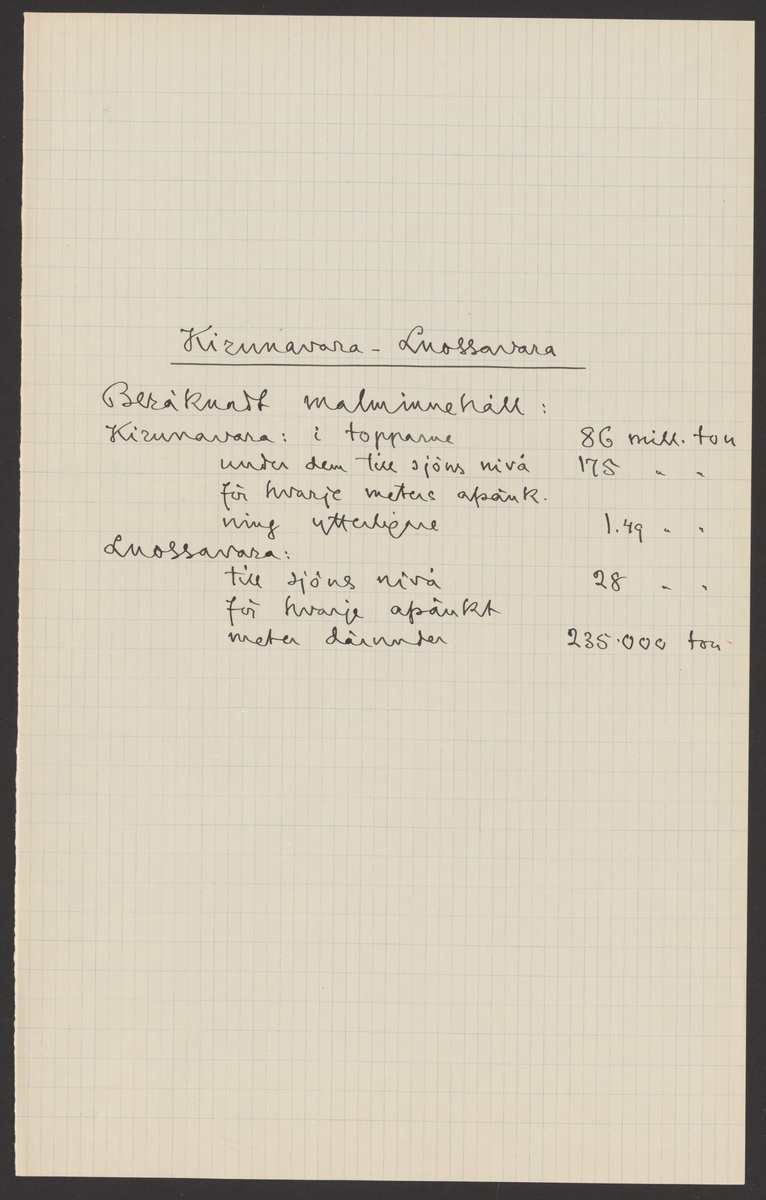 Kirunavara - Luossavara
Beräknadt malminnehåll:
Kirunavara: i topparne 86 mill. ton
under dem till sjöns nivå 175 " "
för hvarje meters afsänk-
ning ytterligare 1.49 " "
Luossavara:
till sjöns nivå 28 " "
för hvarje afsänkt
meter därunder 235.000 ton